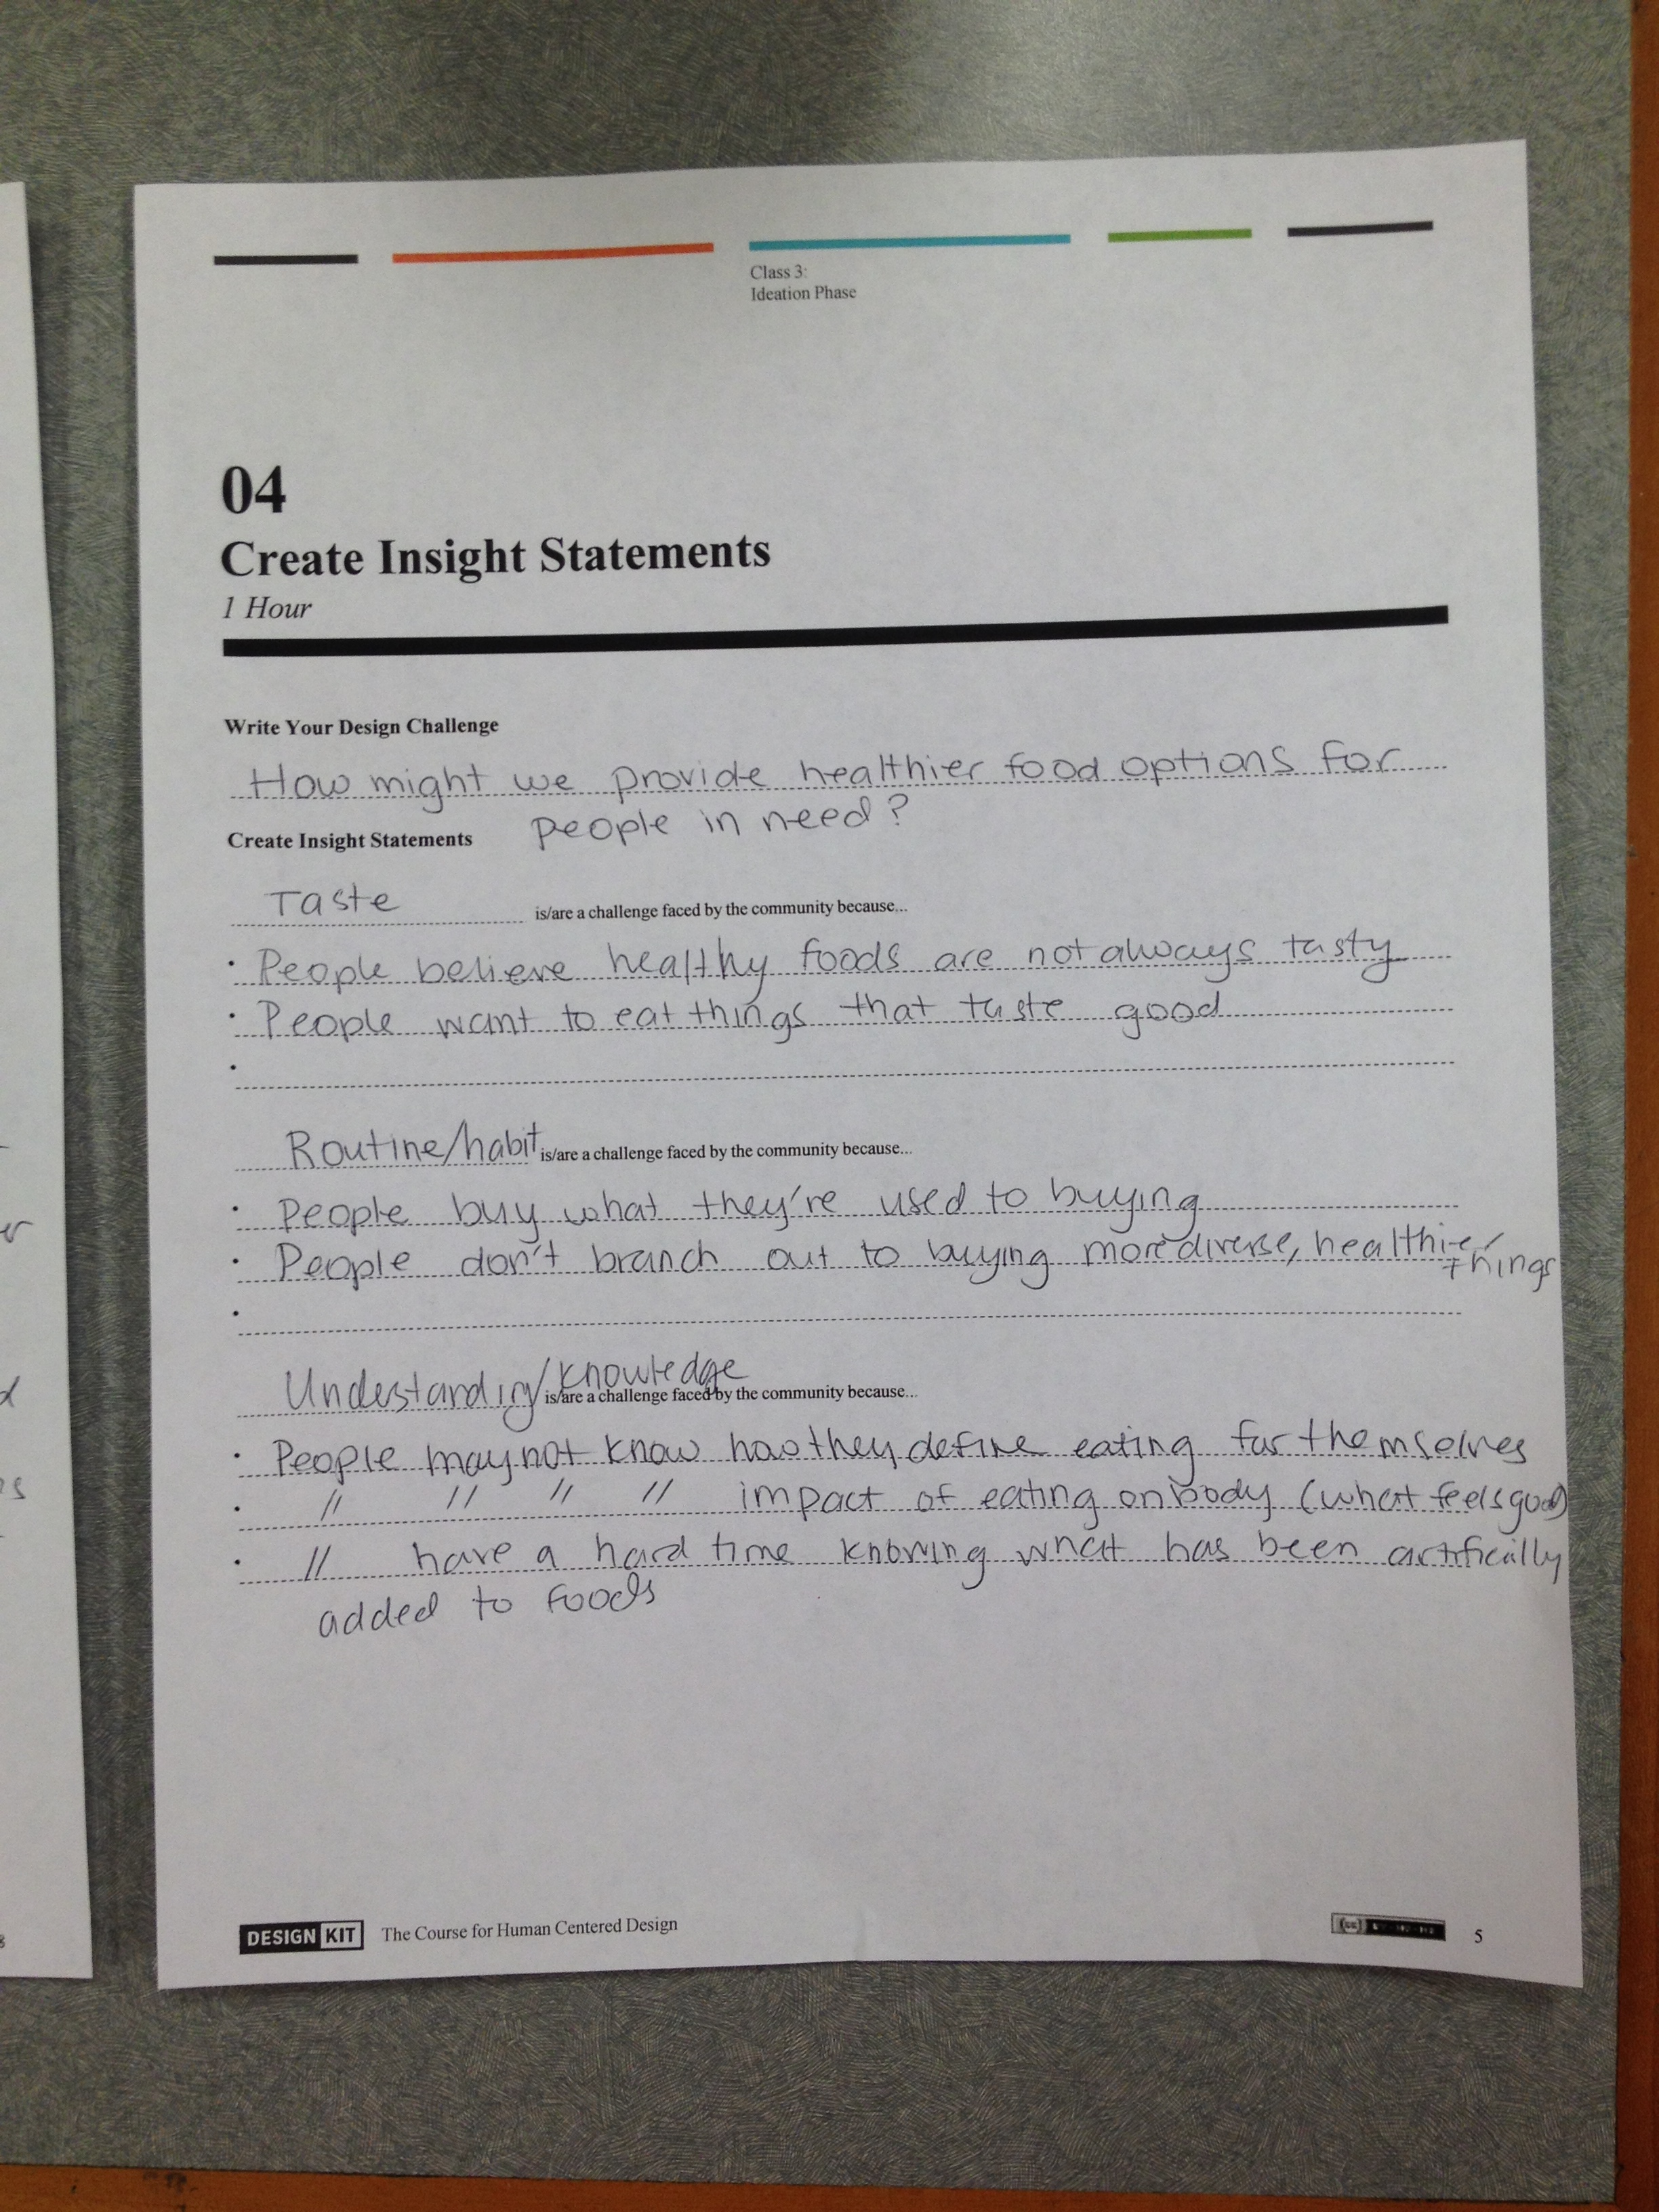 Class 3:
Ideation Phase
04
Create Insight Statements
1 Hour
Write Your Design Challenge
How might we provide healthier food options for
people in need?
Create Insight Statements
Taste is/are a challenge faced by the community because...
• People believe healthy foods are not always tasty
• People want to eat things that taste good
•
Routine/habit is/are a challenge faced by the community because...
• People buy what they're used to buying
• People don't branch out to buying more diverse, healthier
things
•
Understanding/knowledge is/are a challenge faced by the community because...
• People may not know how they define eating for themselves
• " " " " impact of eating on body (what feels good)
• " have a hard time knowing what has been artifically
added to foods
DESIGN KIT The Course for Human Centered Design
5
er
d
es
8